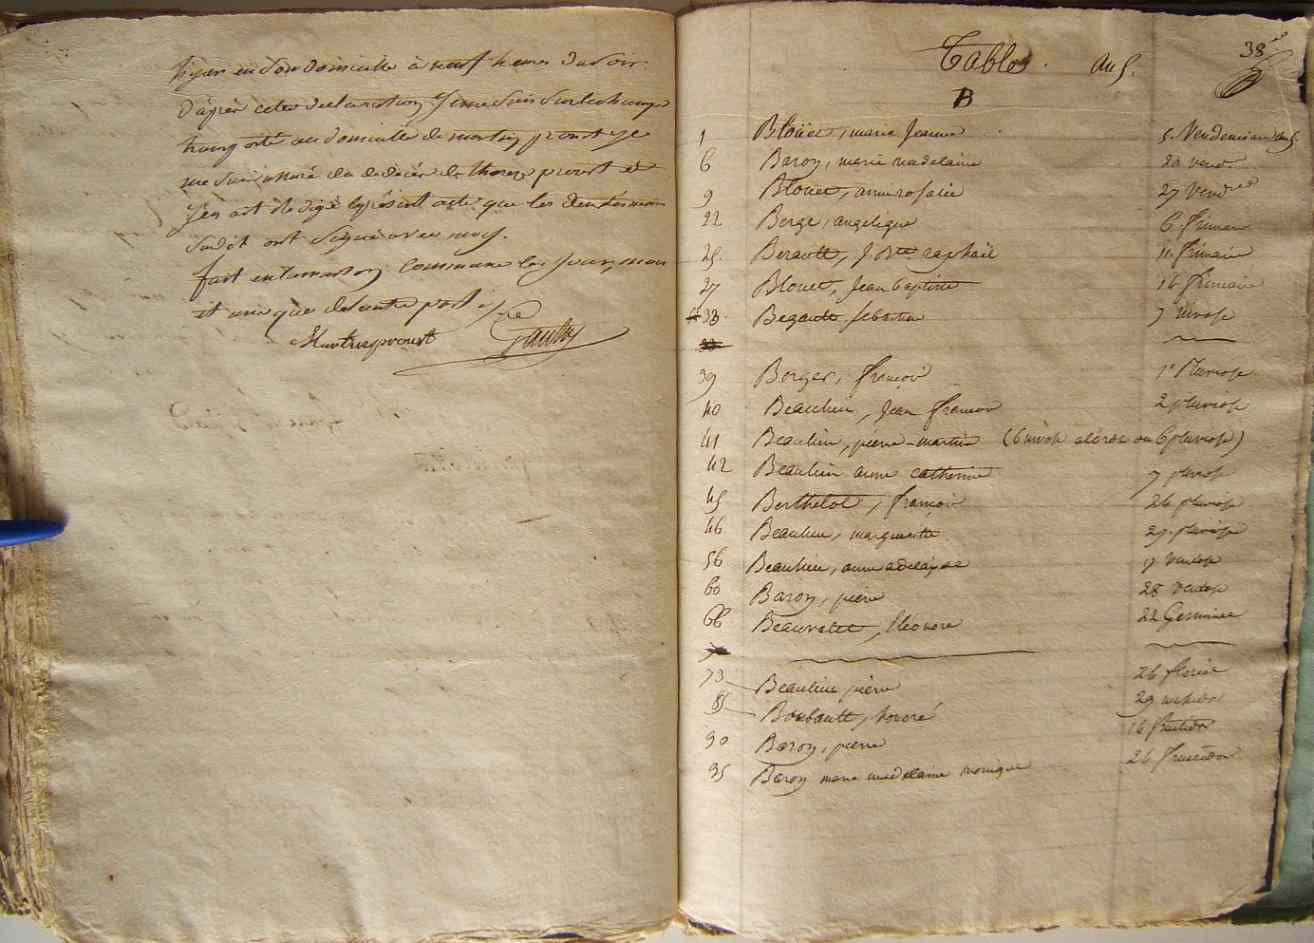 hyer en son domicille à neuf heures du soir
d'après cette declaration je me suis sur le champ
transporté au domicille de martin provost je
me suis assuré du deces de provost et
j'en ait redigé le présent acte que les deux témoins
susdit ont signé avec moy.
fait en commune les jour, mois
et an que de part
provost Gaultier
38
Table. An 5.
B
1 Bloüet, marie Jeanne 5. Vendemiaire an 5.
6 Baron, marie madelaine 20 vend
9 Blouet, anne rosalie 27 Vend
22 Berge, angelique 6 frimaire
25. Berault, J. Bte raphaël 11 frimaire
27 Blouet, Jean Baptiste 16 frimaire
33. Begault, sebastien 7 nivose
39 Berger, françois 1er Pluviose
40 Beaulieu, Jean françois 2 pluviose
41 Beaulieu, pierre-martin (6 nivose ou 6 pluviose)
42 Beaulieu anne catherine 7 pluviose
45 Berthelot, françois 26 pluviose
46 Beaulieu, marguerite 29. pluviose
56 Beaulieu, anne adelayde 17 Ventose
60 Baron, pierre 28 Ventose
66 Beauvalet, Eléonore 22 Germinal
73 Beaulieu pierre 26 floréal
85 Boubault, honoré 29 messidor
90 Baron, pierre 16 fructidor
95 Baron marie madelaine monique 26 fructidor